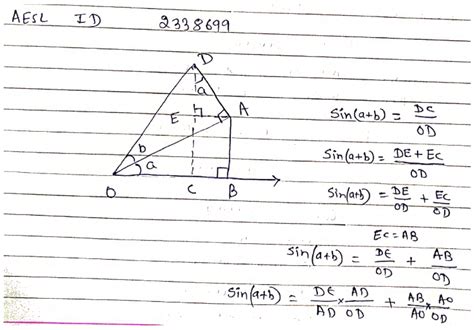 AESL ID 2338699
D
a
E
A
b
a
O
C
B
Sin(a+b) = DC/OD
Sin(a+b) = DE + EC/OD
Sin(a+b) = DE/OD + EC/OD
EC = AB
Sin(a+b) = DE/OD + AB/OD
Sin(a+b) = DE/AD × AD/OD + AB/AO × AO/OD